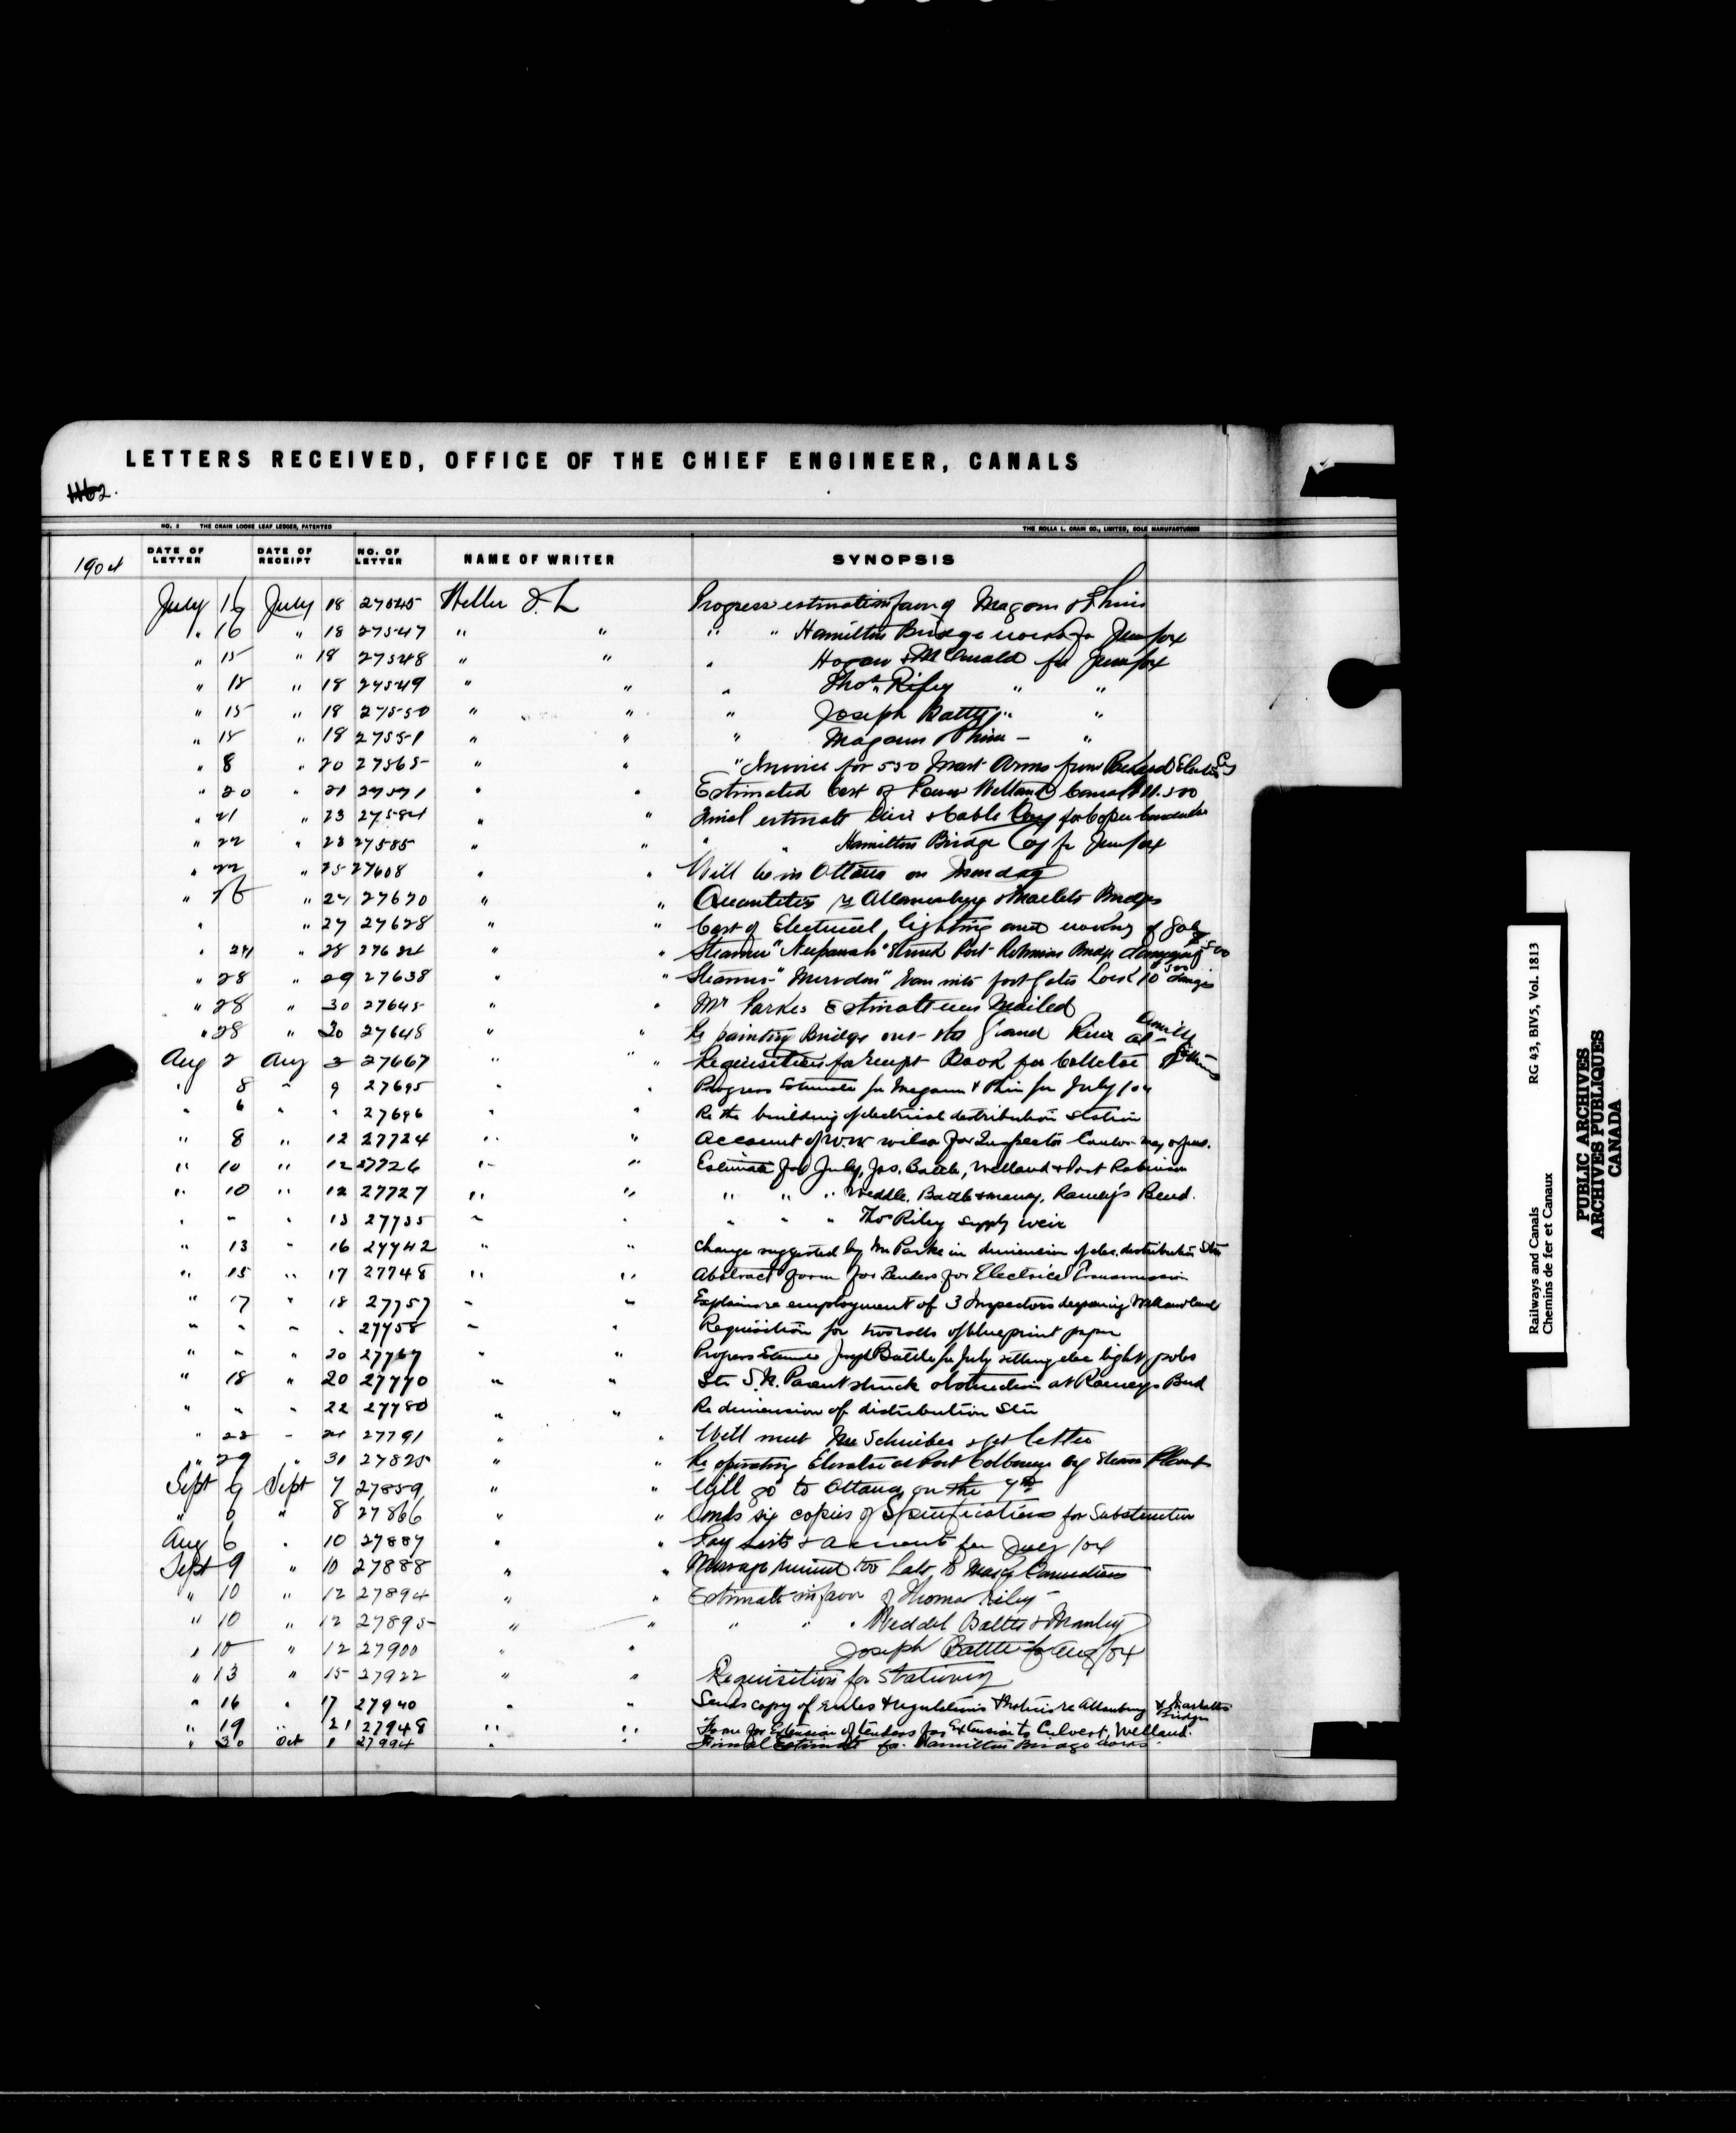 LETTERS RECEIVED, OFFICE OF THE CHIEF ENGINEER, CANALS
NO. 2 THE CRAIN LOOSE LEAF LEDGER, PATENTED THE ROLLA L. CRAIN CO., LIMITED, SOLE MANUFACTURERS
1904 DATE OF LETTER DATE OF RECEIPT NO. OF LETTER NAME OF WRITER SYNOPSIS
July 16 July 18 27545 Weller J. L Progress estimate in favor of Magann & Phin
" 16 " 18 27547 " " " " Hamilton Bridge works for June/04
" 15 " 18 27548 " " " Hogan & McDonald for June/04
" 15 " 18 27549 " " " Thos. Riley " "
" 15 " 18 27550 " " " Joseph Battle " "
" 15 " 18 27551 " " " Magann & Phin - "
" 8 " 20 27565 " " " Invoice for 550 Mast Arms from Packard Electric Coy
" 20 " 21 27571 " " Estimated Cost of Power Welland Canal
" 21 " 23 27584 " " Final estimate Wire & Cable Coy for Copper
" 22 " 23 27585 " " " " Hamilton Bridge Coy for June/04
" 22 " 25 27608 " " Will be in Ottawa on Monday
" 26 " 27 27620 " " Quantities re Allanburg & Marlatts Bridges
" " 27 27628 " " Cost of Electrical lighting and
" 27 " 28 27634 " " Steamer "Neepawah" struck Port Robinson Bridge damaging \$500
" 28 " 29 27638 " " Steamer "Meredon" ran into foot Gates Lock 10
" 28 " 30 27645 " " Mr Parkes Estimate was Mailed
" 28 " 30 27648 " " Re painting Bridge over the Grand River at
Aug 2 Aug 3 27667 " " Requisition for receipt Book for Collector
" 8 " 9 27695 " " Progress Estimate for Magann & Phin for July/04
" 6 " " 27696 " " Re the building of electrical distribution station
" 8 " 12 27724 " " Account of W.W Wilson for Inspector
" 10 " 12 27726 " " Estimate for July, Jos. Battle, Welland & Port Robinson
" 10 " 12 27727 " " " " " Weddle, Battle & Manley, Ramey's Bend.
" " " 13 27735 " " " " " Thos Riley supply weir
" 13 " 16 27742 " " Change suggested by Mr Parke in dimension of elec. distribution Stn
" 15 " 17 27748 " " Abstract form for Tenders for Electrical Transmission
" 17 " " 18 27757 " " Explains re employment of 3 Inspectors deepening Welland Canal
" " " " 27758 " " Requisition for two rolls of blueprint paper
" " " 20 27767 " " Progress Estimate Joseph Battle for July setting elec light poles
" 18 " 20 27770 " " Str S.N. Parent struck obstruction at Rameys Bend
" " " 22 27780 " " Re dimension of distribution Stn
" 22 " 24 27791 " " Will meet Mr Schreiber
" 29 " 31 27825 " " Re operating Elevator at Port Colborne by Steam Plant
Sept 6 Sept 7 27859 " " Will go to Ottawa on the 7th
" 6 " 8 27866 " " Sends six copies of Specifications for Substructure
Aug 6 " 10 27887 " " Pay lists & account for July/04
Sept 9 " 10 27888 " " Message received too late to
" 10 " 12 27894 " " Estimate in favor of Thomas Riley
" 10 " 12 27895 " " " " " Weddel Battle & Manley
" 10 " 12 27900 " " Joseph Battle for Aug/04
" 13 " 15 27922 " " Requisition for Stationery
" 16 " 17 27940 " " Sends copy of rules & regulations & notice re Allanburg & Marlatts Bridges
" 19 " 21 27948 " " Form for Extension of tenders for Extension to Culvert, Welland.
" 30 Oct 1 27994 " " Final Estimate for Hamilton Bridge works.
Railways and Canals RG 43, BIV5, Vol. 1813
Chemins de fer et Canaux
PUBLIC ARCHIVES
ARCHIVES PUBLIQUES
CANADA